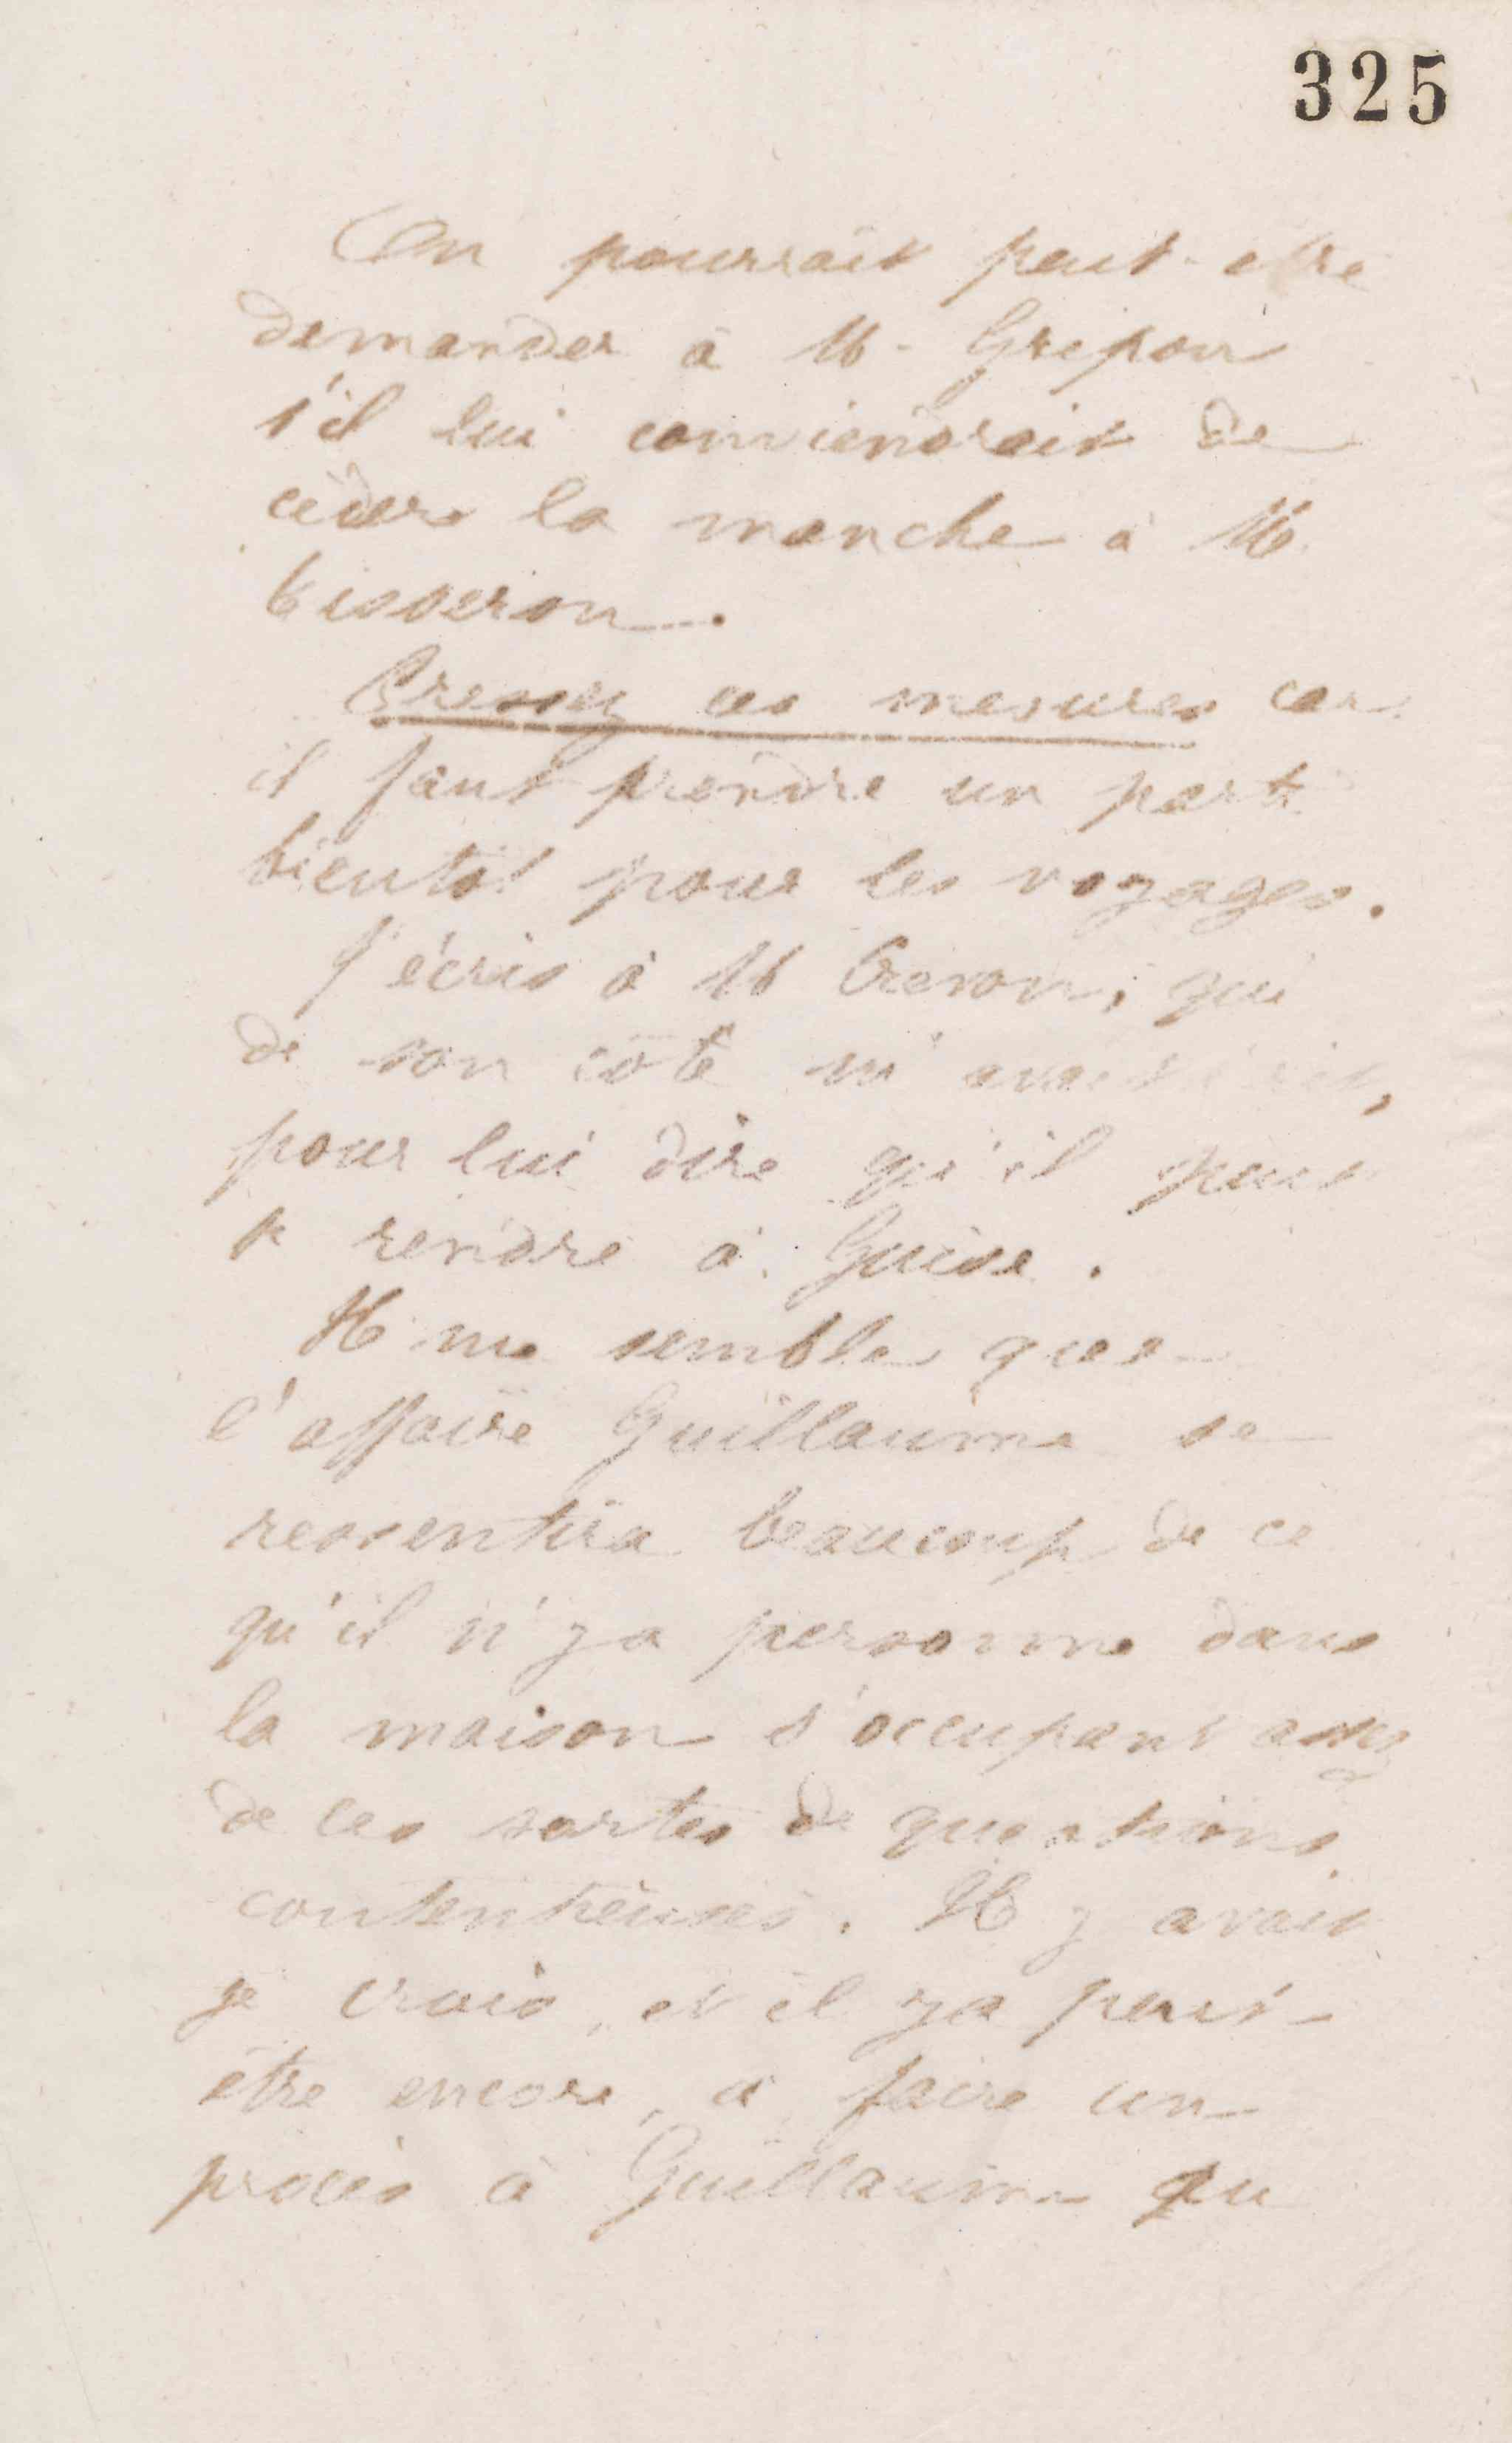 325
On pourrait peut-etre
demander à M. Grepon
s'il lui conviendrait de
céder la manche à M.
Tisseron.
Pressez ces mesures car
il faut prendre un parti
bientôt pour les voyages.
J'écris à M qui
de son côté m'avait écrit,
pour lui dire qu'il peut
se rendre à Guise.
Il me semble que
l'affaire Guillaume se
ressentira beaucoup de ce
qu'il n'y a personne dans
la maison s'occupant assez
de ces sortes de questions
contentieuses. Il y avait
je crois, et il y a peut-
être encore, à faire un
procès à Guillaume qu